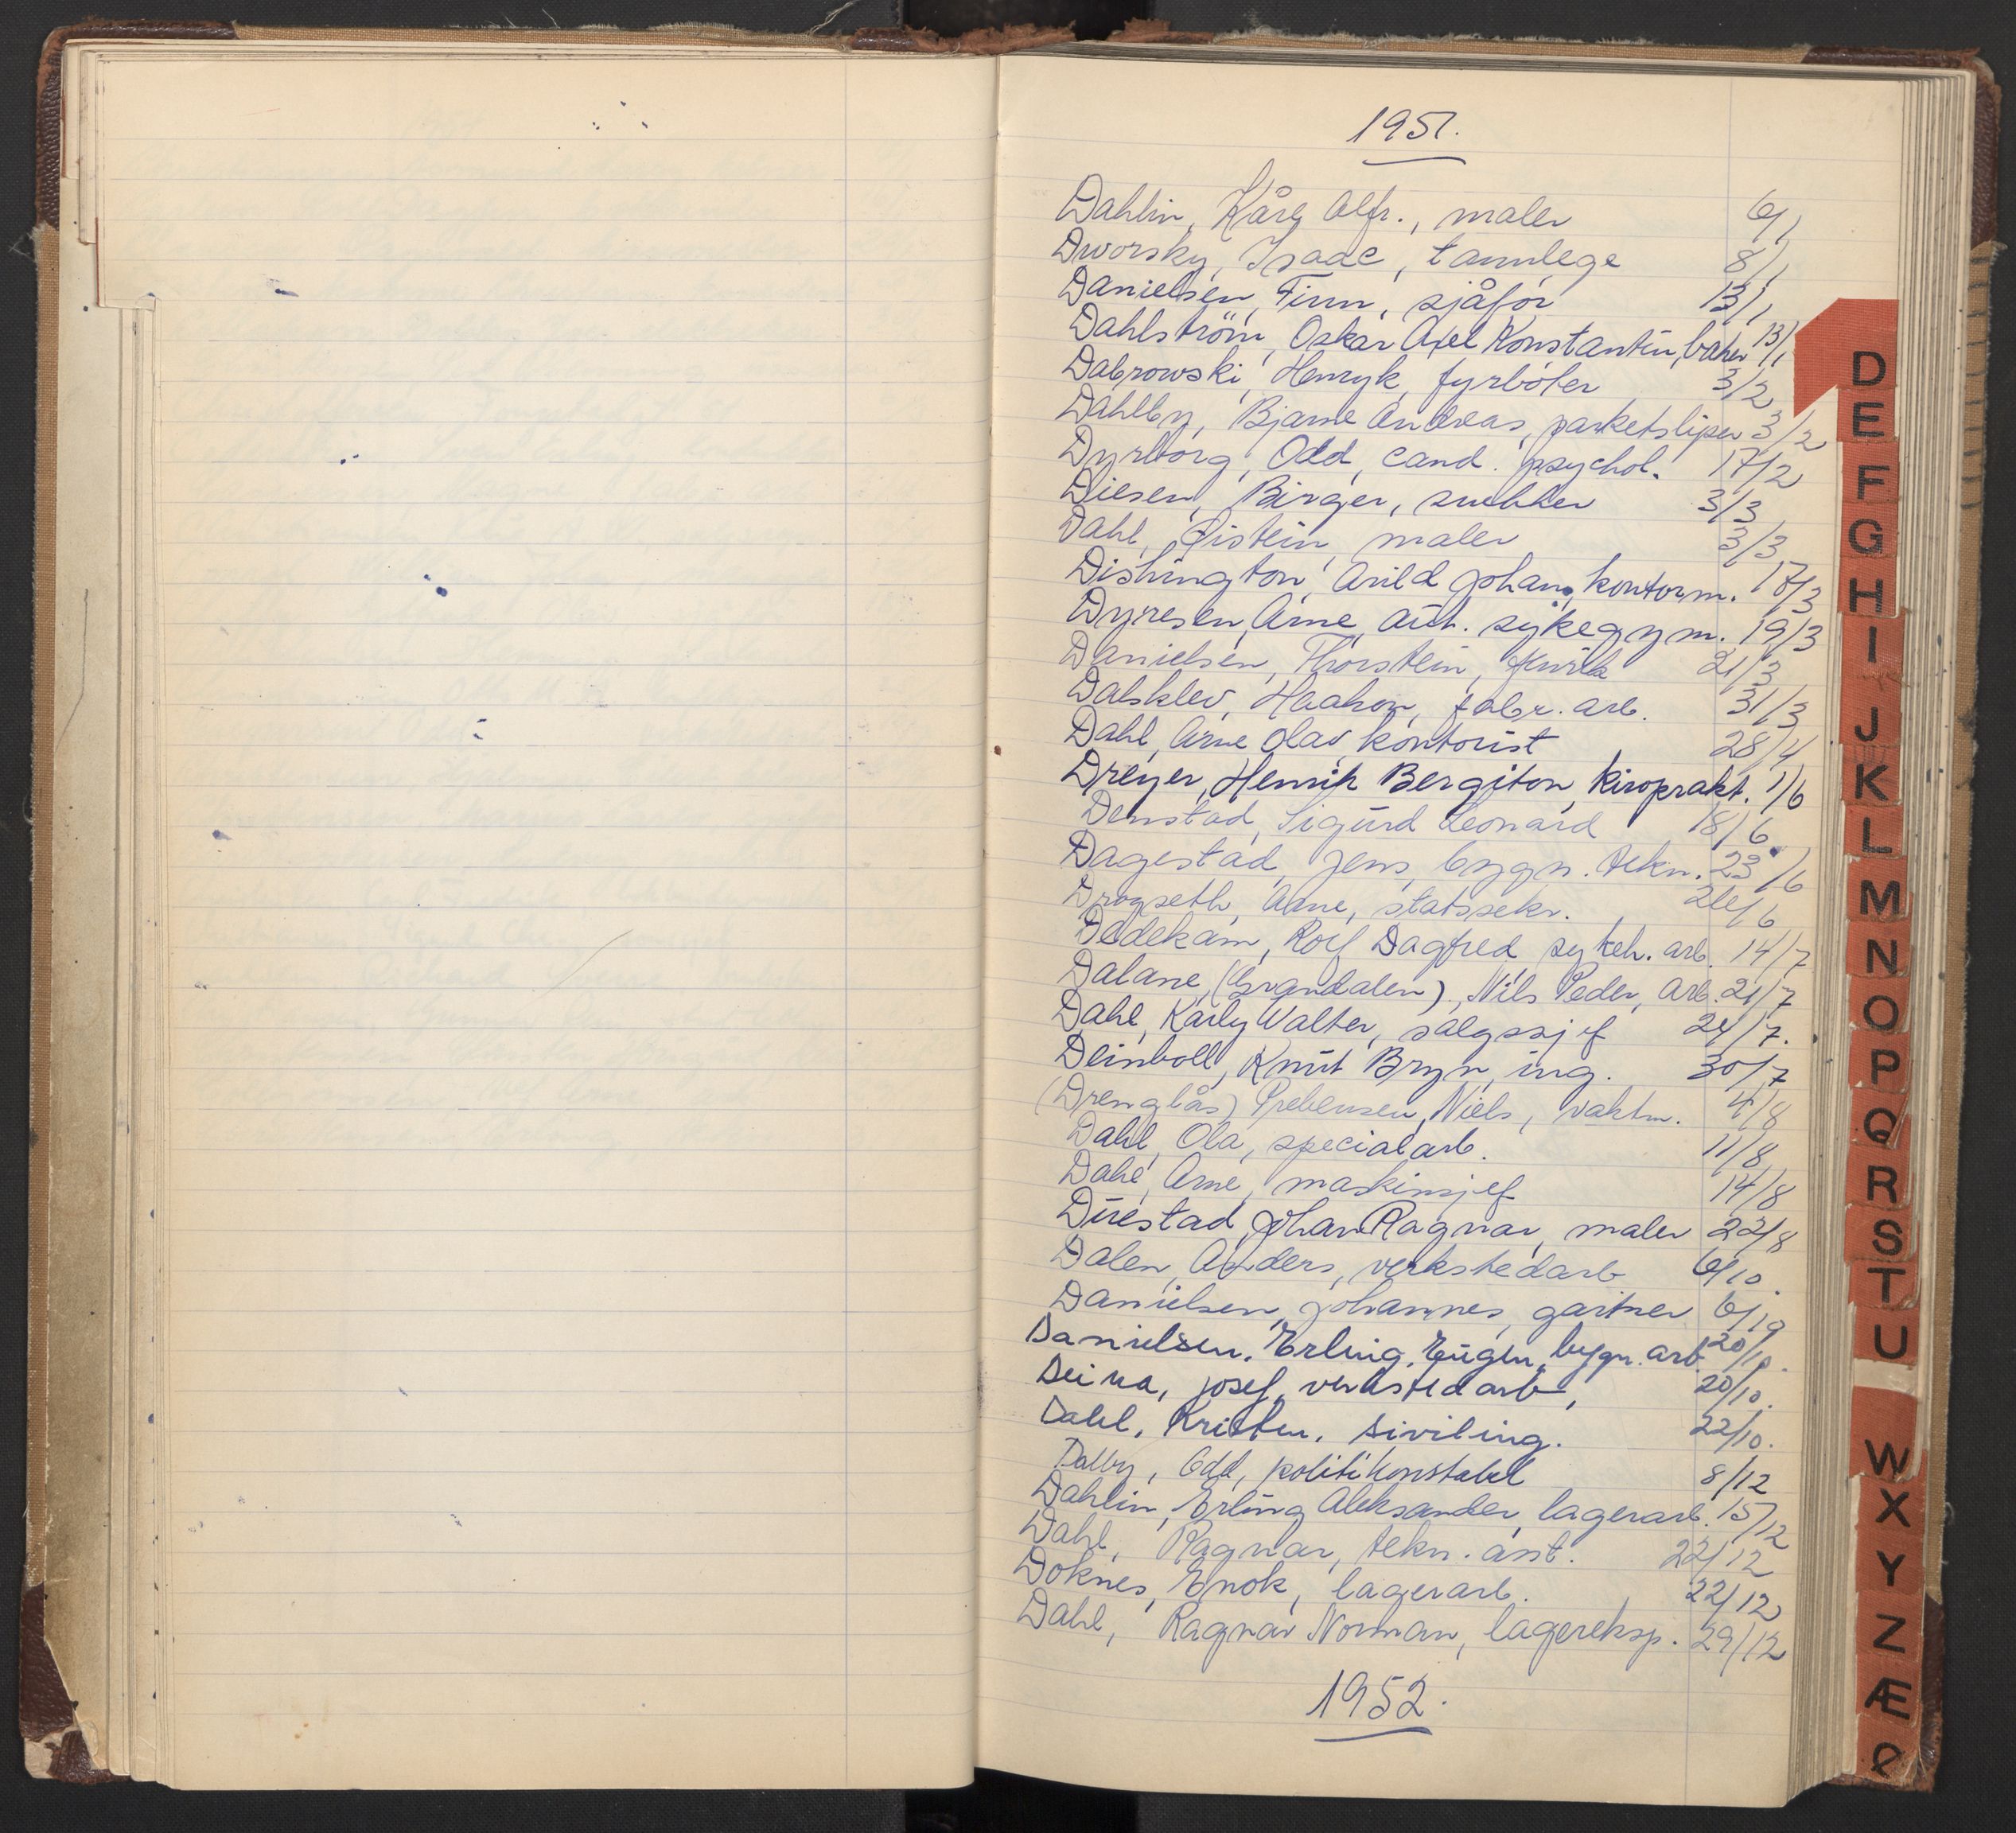 1951.
Dahlin, Kåre Alfr., maler 6/1
Dworsky, Isaac, tannlege 8/1
Danielsen, Finn, sjåfør 13/1
Dahlström, Oskar Axel Konstantin, baker 13/1
Dabrowski, Henryk, fyrbøter 3/2
Dahlby, Bjarne Andreas, parketsliper 3/2
Dyrborg, Odd, cand. psychol. 17/2
Diesen, Birger, snekker 3/3
Dahl, Øistein, maler 3/3
Dishington, Arild Johan, kontorm. 17/3
Dyresen, Arne, aut. sykegym. 19/3
Danielsen, Thorstein, 21/3
Dalsklev, Haakon, fabr. arb. 31/3
Dahl, Arne Olav, kontorist 28/4
Dreyer, Henrik Bergiton, kiroprakt. 1/6
Denstad, Sigurd Leonard 18/6
Dagestad, Jens, bygn. tekn. 23/6
Drogseth, Arne, statssekr. 26/6
Dedekam, Rolf Dagfred sykeh. arb. 14/7
Dalane, (Grandalen), Nils Peder, arb. 21/7
Dahl, Karly Walter, salgssjef 24/7.
Deinboll, Knut Bryn, ing. 30/7
(Drenglås) Prebensen, Niels, vaktm. 4/8
Dahl, Ola, specialarb. 11/8
Dahl, Arne, maskinsjef 14/8
Duestad, Johan Ragnar, maler 22/8
Dalen, Anders, verkstedarb 6/10.
Danielsen, Johannes, gartner 6/10
Danielsen, Erling, Eugen, bygn. arb. 20/10.
Deina, Josef, verkstedarb, 20/10.
Dahl, Kristen, siviling. 22/10.
Dalby, Odd, politikonstabel 8/12
Dahlin, Erling Aleksander, lagerarb. 15/12
Dahl, Ragnar, tekn. ass't. 22/12
Doknes, Enok, lagerarb. 22/12
Dahl, Ragnar Norman, lagereksp. 29/12
1952.
D
E
F
G
H
I
J
K
L
M
N
O
P
Q
R
S
T
U
W
X
Y
Z
Æ
Ø